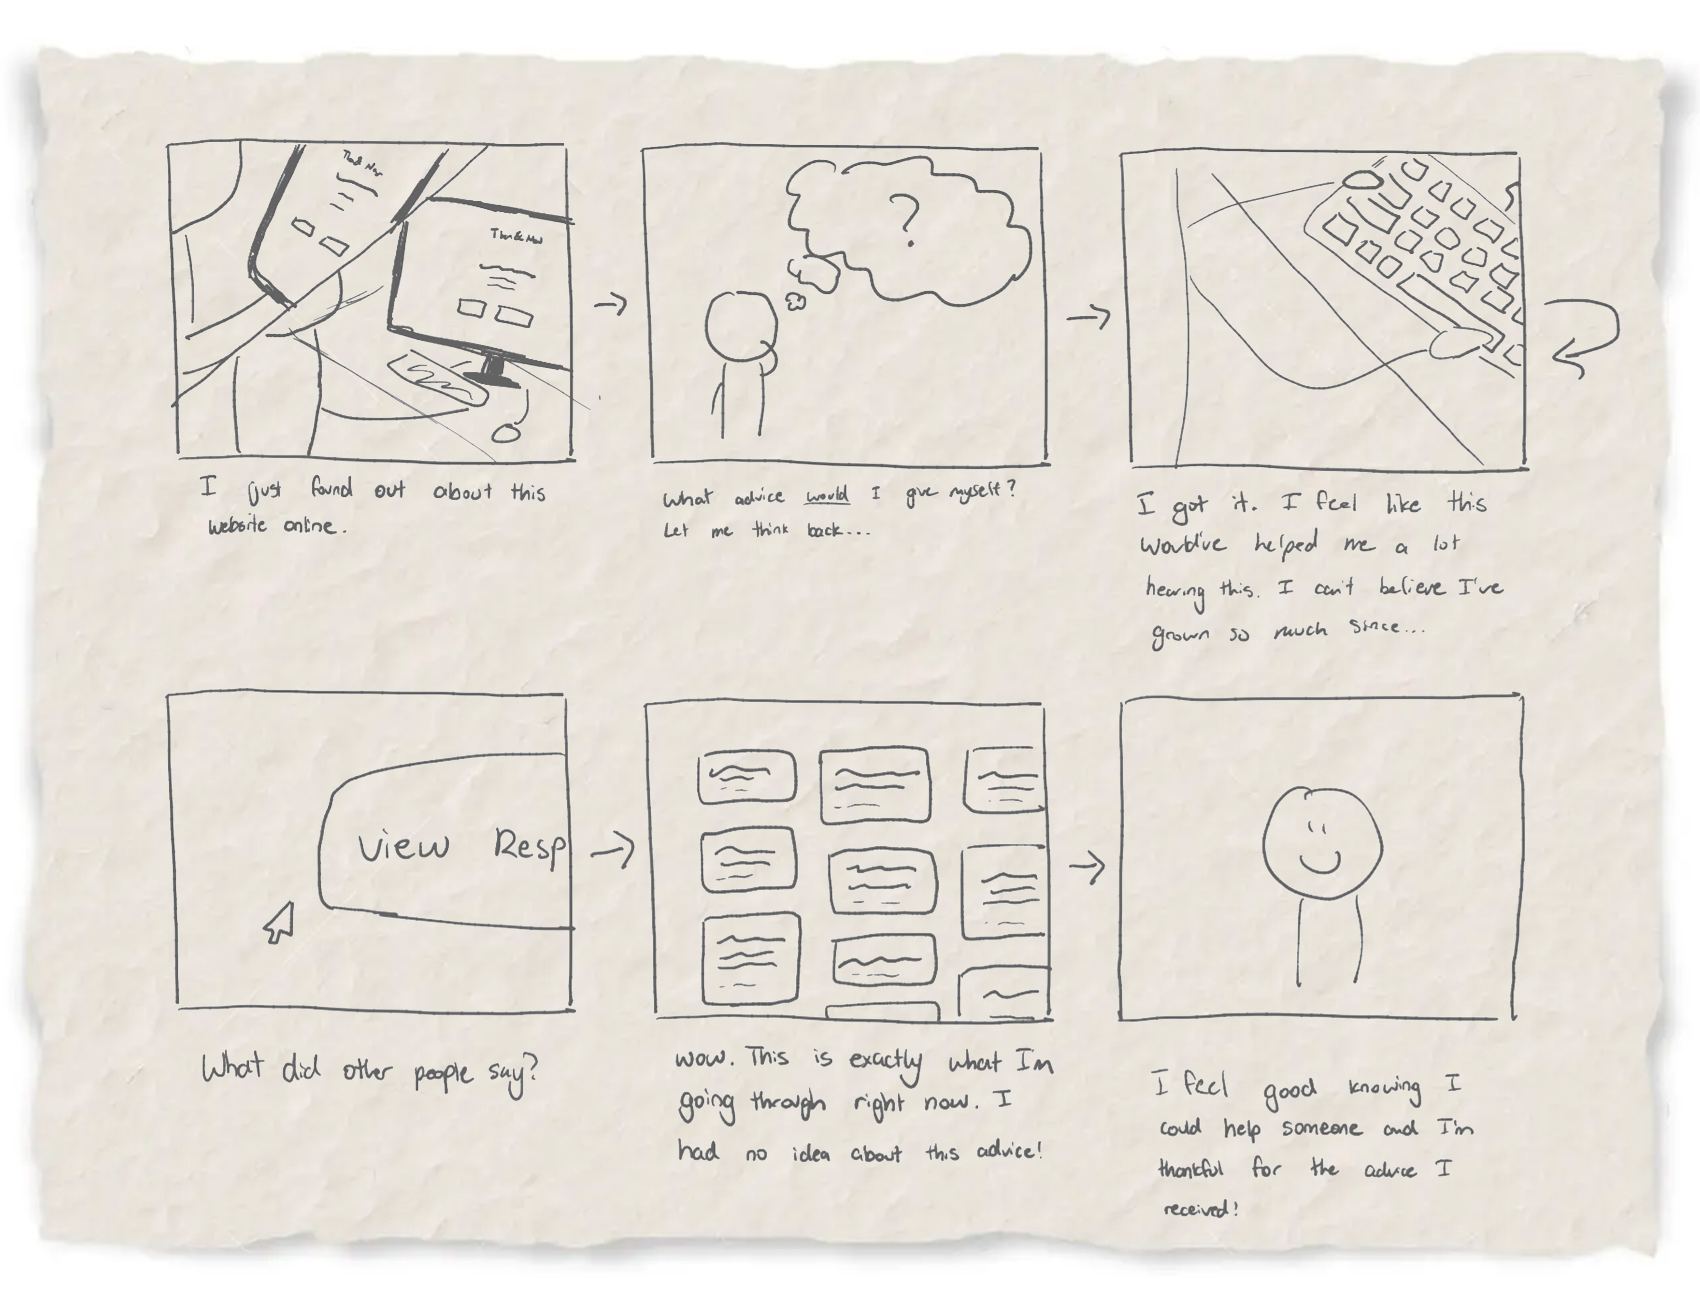 Then & Now
Then & Now
?
I just found out about this
website online.
What advice would I give myself?
Let me think back...
I got it. I feel like this
would've helped me a lot
hearing this. I can't believe I've
grown so much since...
View Resp
What did other people say?
wow. This is exactly what I'm
going through right now. I
had no idea about this advice!
I feel good knowing I
could help someone and I'm
thankful for the advice I
received!